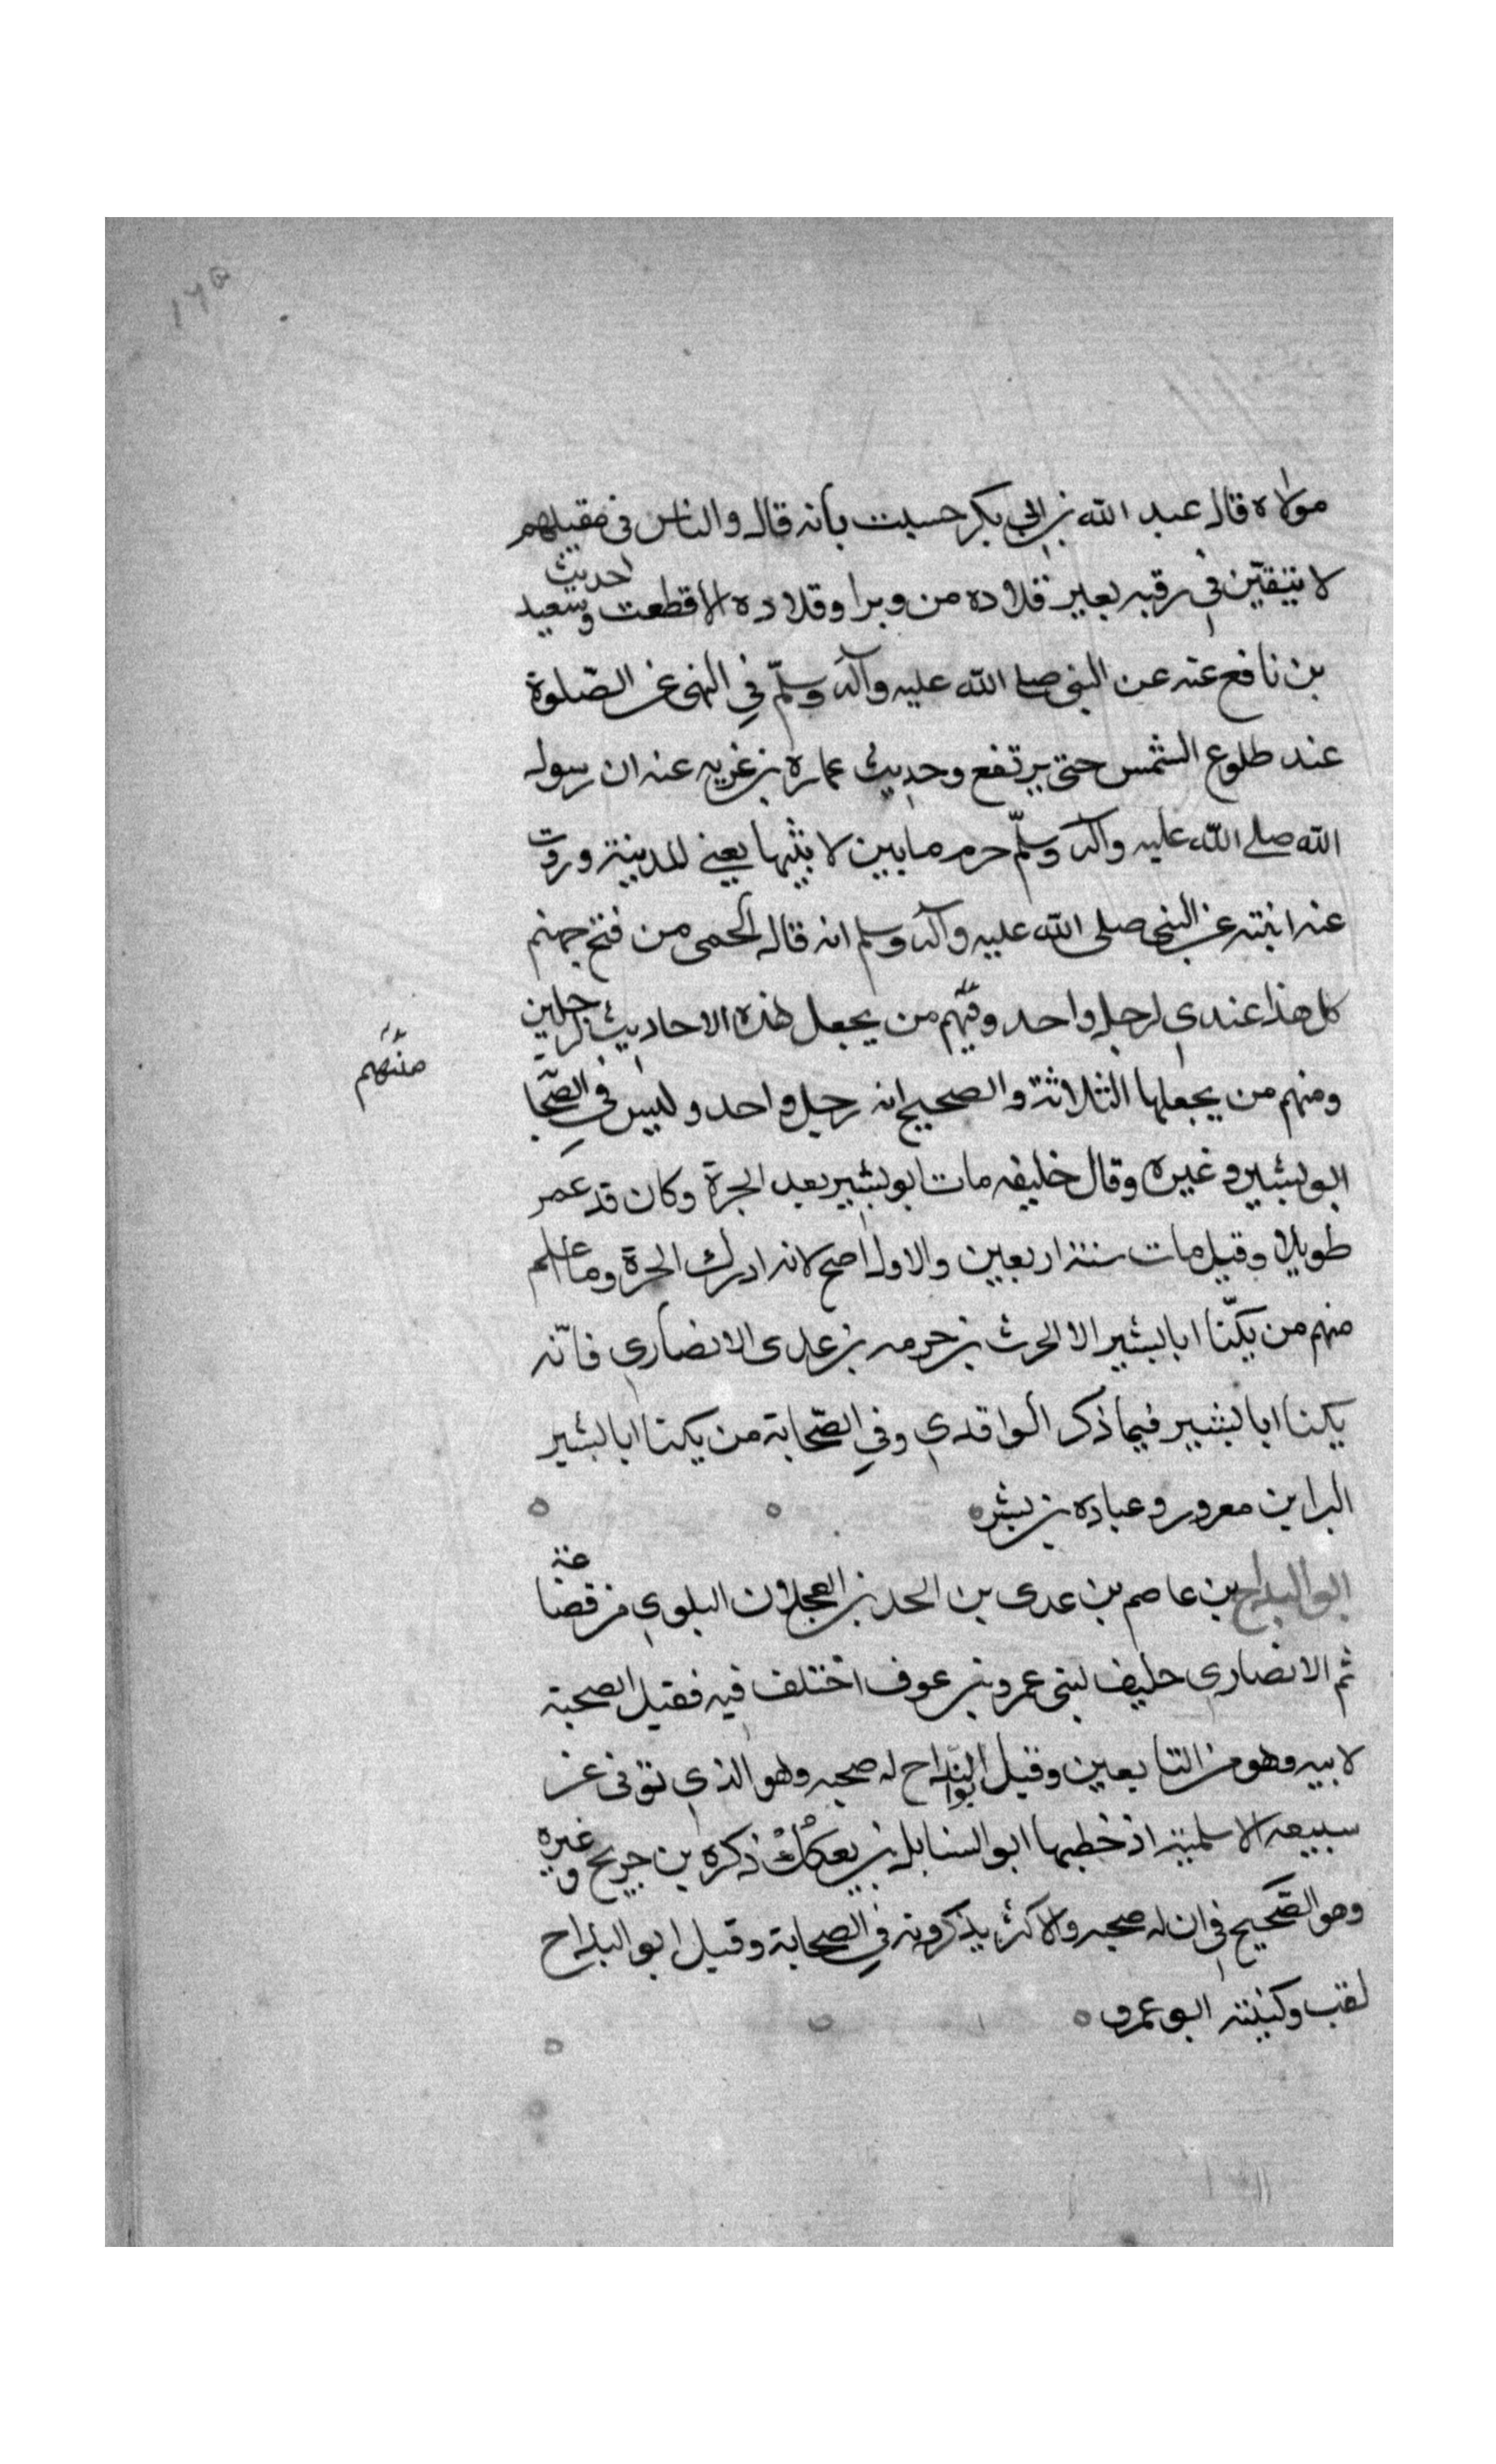 ١٧٥
مولاه قال عبد الله بن ابي بكر حسبت بأنه قال والناس في مقيلهم
لا تبقين في رقبه بعير قلاده من وبر او قلاده الا قطعت وحديث سعيد
بن نافع عنه عن النبي صلى الله عليه وآله وسلّم في النهي عن الصّلوة
عند طلوع الشمس حتى يرتفع وحديث عمارة بن غزيه عنه ان رسول
الله صلى اللّه عليه وآله وسلّم حرم ما بين لابتيها يعني المدينة وروت
عنه ابنته عن النبي صلى الله عليه وآله وسلم انه قال الحمى من فتح جهنم
كل هذا عندي لرجل واحد وفيهم من يجعل هذه الاحاديث لرجلين
منهم
ومنهم من يجعلها الثلاثة والصحيح انه رجل واحد وليس في الصّحا
ابو بشير وغيره وقال خليفه مات ابو بشير بعد الحرة وكان قد عمر
طويلا وقيل مات سنة اربعين والاول اصح لانه ادرك الحرة وما علم
منهم من يكنّا ابا بشير الا الحرث بن حرمه بن عدى الانصاري فانّه
يكنا ابا بشير فيما ذكر الواقدي وفي الصّحابة من يكنا ابا بشير
البرا بن معرور وعباده بن بشر
ابو البداح بن عاصم بن عدى بن الحد بن العجلان البلوي من قضاعة
ثم الانصاري حليف لبنى عمرو بن عوف اختلف فيه فقيل الصحبة
لابيه وهو من التابعين وقيل ابو البداح له صحبه وهو الذي توفى عن
سبيعه الاسلمية اذ خطبها ابو السنابل بن بعكك ذكره بن جريج وغيره
وهو الصّحيح في ان له صحبه والاكثر يذكرونه في الصحابة وقيل ابو البداح
لقب وكنيته ابو عمرو